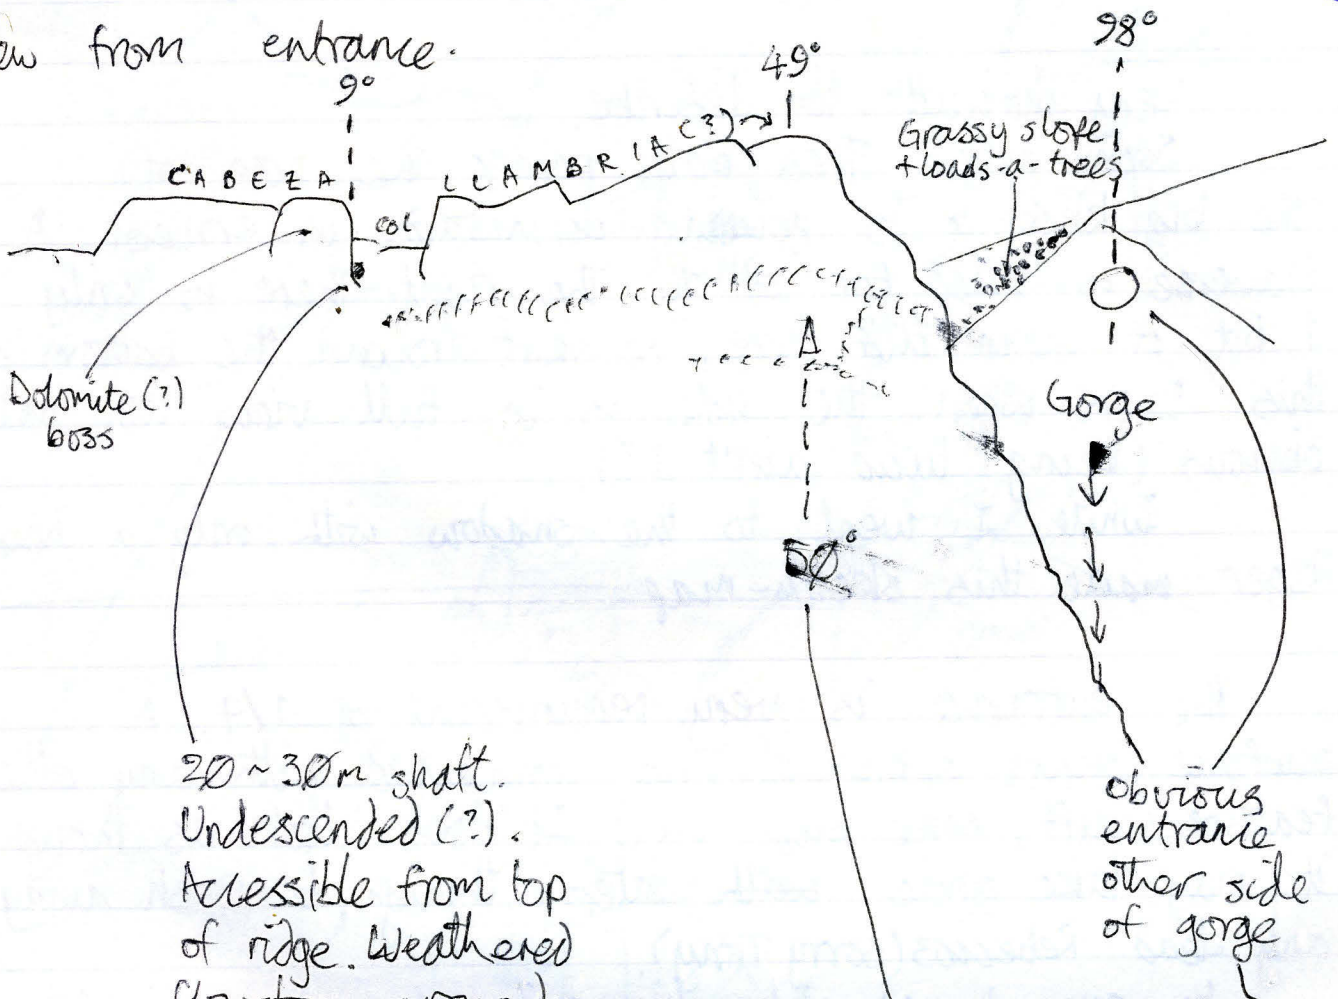 from entrance.
9°
49°
98°
CABEZA
LLAMBRIA(?)
col
Grassy slope
+loads-a-trees
Dolomite(?)
boss
Gorge
50°
20~30m shaft.
Undescended(?).
Accessible from top
of ridge. Weathered
Obvious
entrance
other side
of gorge